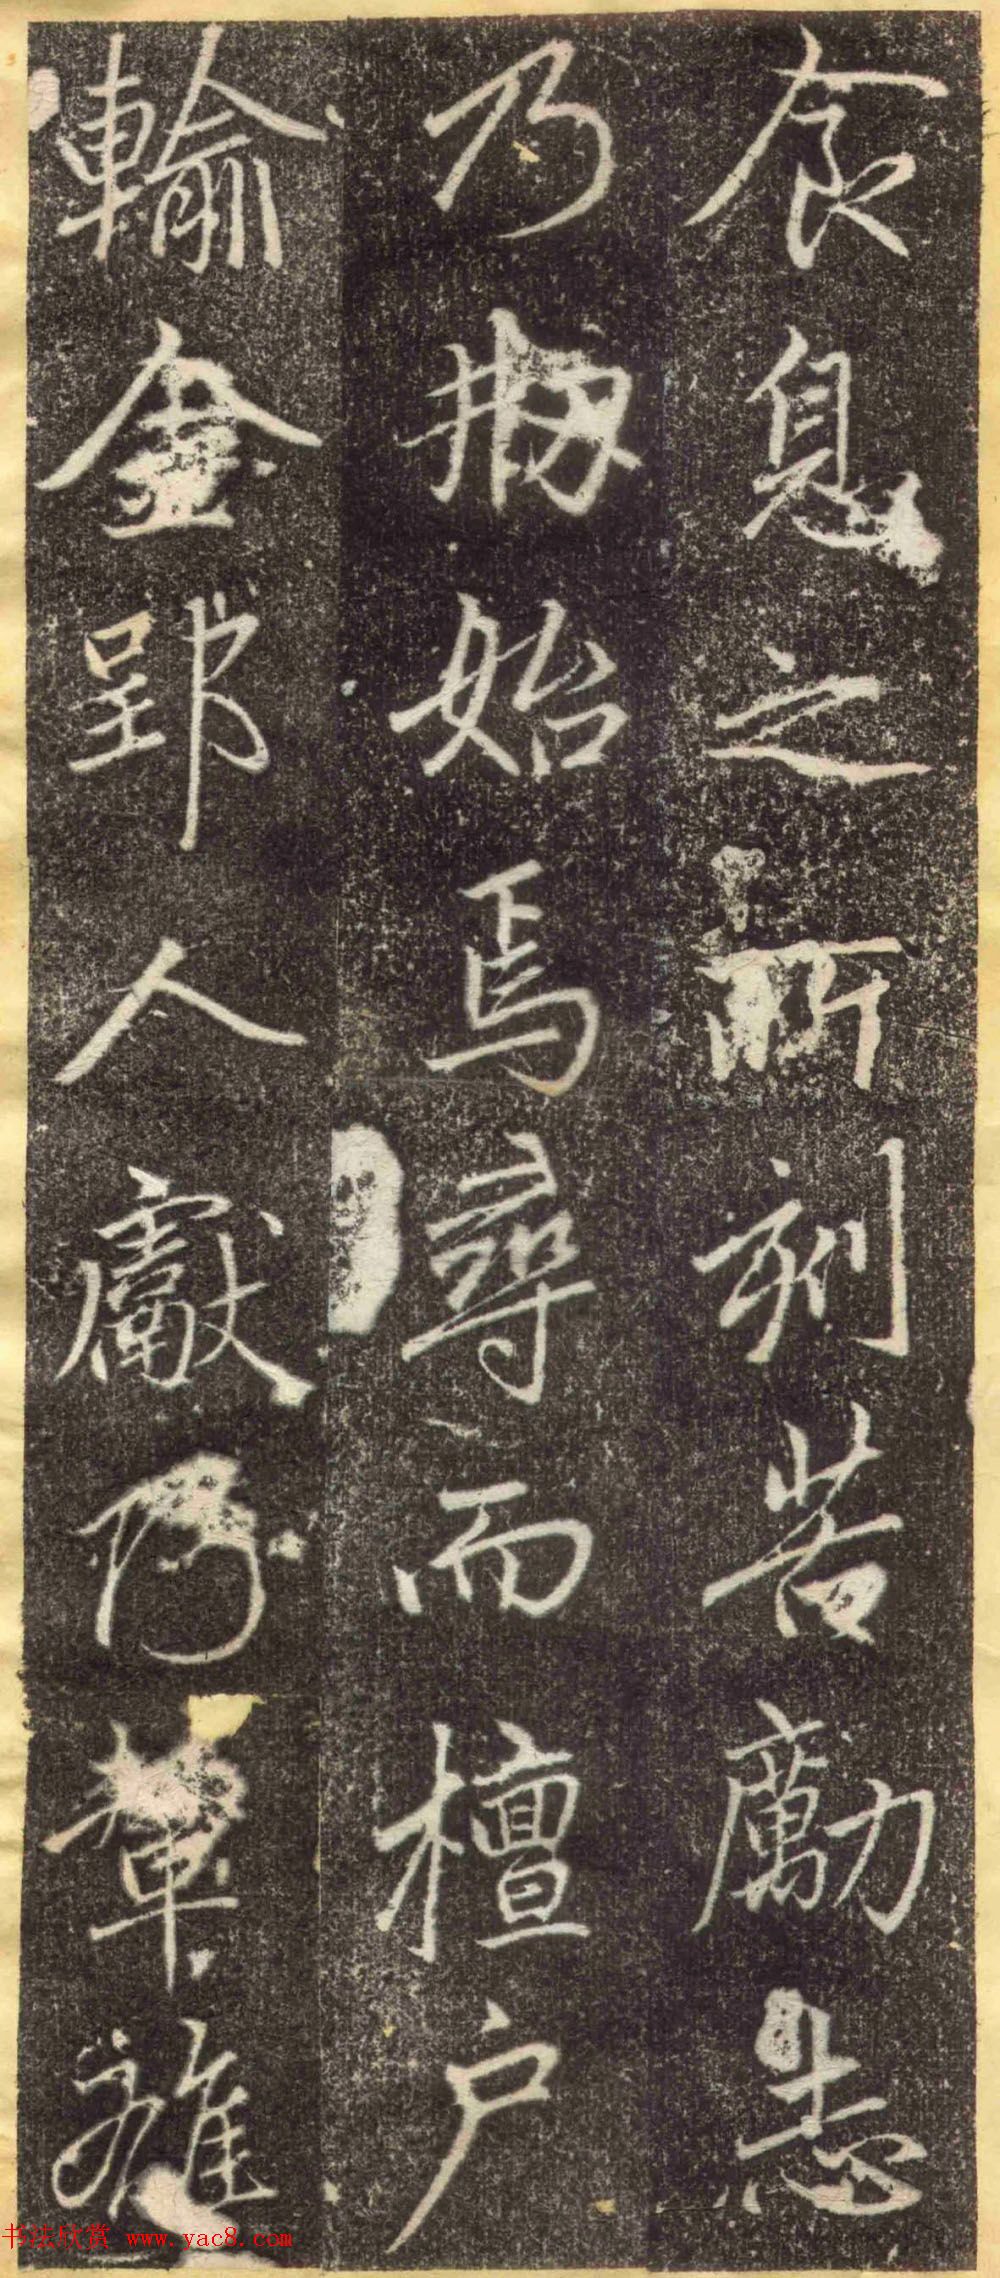 食息之所刻苦勵志
乃始焉尋而檀户
輸金郢人獻
书法欣赏 www.yac8.com